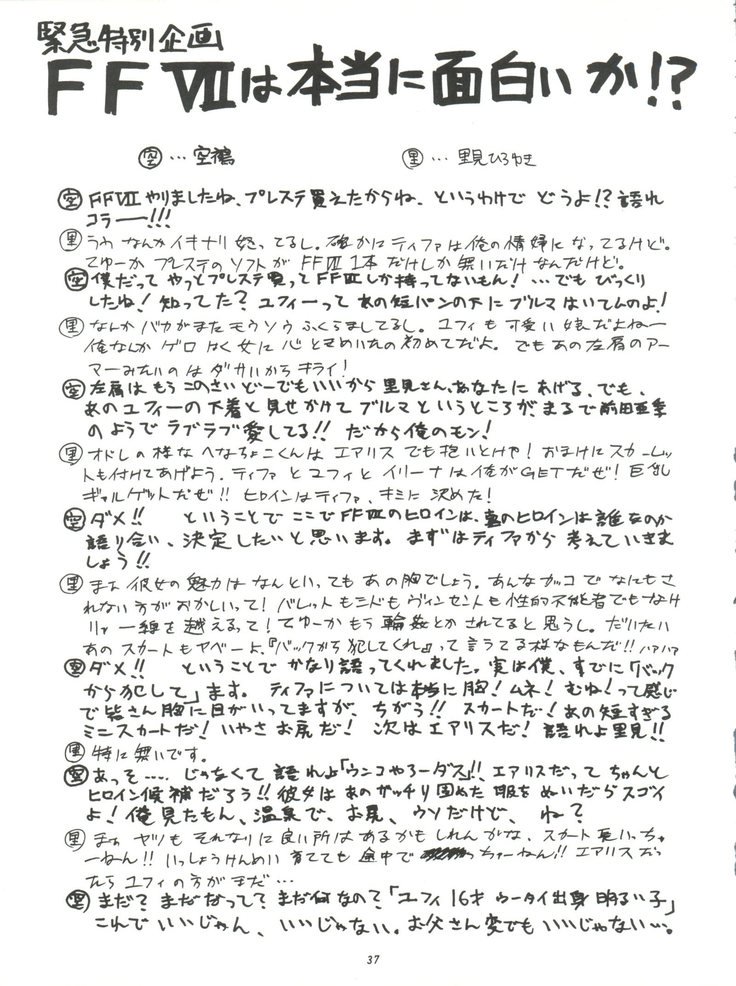 緊急特別企画
FFⅦは本当に面白いか!?
空…空鵺
里…里見ひろゆき
空 FFⅦやりましたね、プレステ買えたからね、というわけで どうよ!? 語れ
コラーー!!!
里 うわ なんか イキナリ 怒ってるし。確かにティファは俺の情婦に なってるけど。
てゆーか プレステの ソフトが FFⅦ 1本 だけしか 無いだけ なんだけど。
空 僕だって やっとプレステ 買って FFⅦしか 持ってないもん! …でも びっくり
したね! 知ってた? ユフィーって あの短パンの下に ブルマ はいてんのよ!
里 なんか バカが また モウソウ ふくらましてるし。ユフィも 可愛い 娘だよねー
俺なんか ゲロ はく女に 心 ときめいたの 初めてだよ。でも あの左肩のアー
マーみたいの は ダサいから キライ!
空 左肩は もう このさい どーでもいいから 里見さん、あなたに あげる、でも、
あの ユフィーの 下着と 見せかけて ブルマ というところが、まるで 前田亜季
の ようで ラブラブ 愛してる!! だから 俺のモン!
里 オドレの 様な へなちょこくんは エアリス でも 抱いとけや! おまけに スカーレッ
トも 付けて あげよう。ティファ と ユフィと イリーナは 俺が GETだぜ! 巨乳
ギャル ゲットだぜ!! ヒロインは ティファ、キミに 決めた!
空 ダメ!! ということで ここで FFⅦのヒロインは、真のヒロインは 誰なのか
語り合い、決定したいと 思います。まずは ティファから 考えて いきま
しょう!!
里 まぁ 彼女の 魅力は なんといっても あの 胸でしょう。あんな カッコ で なにもさ
れない 方が おかしいって! バレットも シドも ヴィンセントも 性的不能者でもなけ
りゃ 一線を 越えるって! てゆーか もう 輪姦とか されてると 思うし。だいたい
あの スカートも ヤベーよ、『バックから 犯してくれ』って 言うてる 様な もんだ!! ハァハァ
空 ダメ!! ということで かなり 語って くれました。実は 僕、すでに「バック
から 犯して」ます。ティファに ついては 本当に 胸! ムネ! むね! って 感じ
で 皆さん 胸に 目が いってますが、ちがう!! スカートだ! あの 短すぎる
ミニスカートだ! いやさ お尻だ! 次は エアリスだ! 語れよ 里見!!
里 特に 無いです。
空 あっそ…… じゃなくて 語れよ「ウンコやろーダス」!! エアリスだって ちゃんと
ヒロイン候補だろう!! 彼女は あの ガッチリ 固めた 服を ぬいだら スゴイ
よ! 俺 見たもん、温泉で、お尻、ウソだけど、ね?
里 まぁ ヤツも それなりに 良い所は あるかも しれんがな、スカート 長いっちゅ
ーねん!! いっしょうけんめい 育てても 途中で っちゅーねん!! エアリスだっ
たら ユフィの方が まだ…
空 まだ? まだ なって? まだ 何なの?「ユフィ 16才 ウータイ出身 明るい子」
これで いいじゃん、いいじゃない。お父さん 変でも いいじゃない…。
37